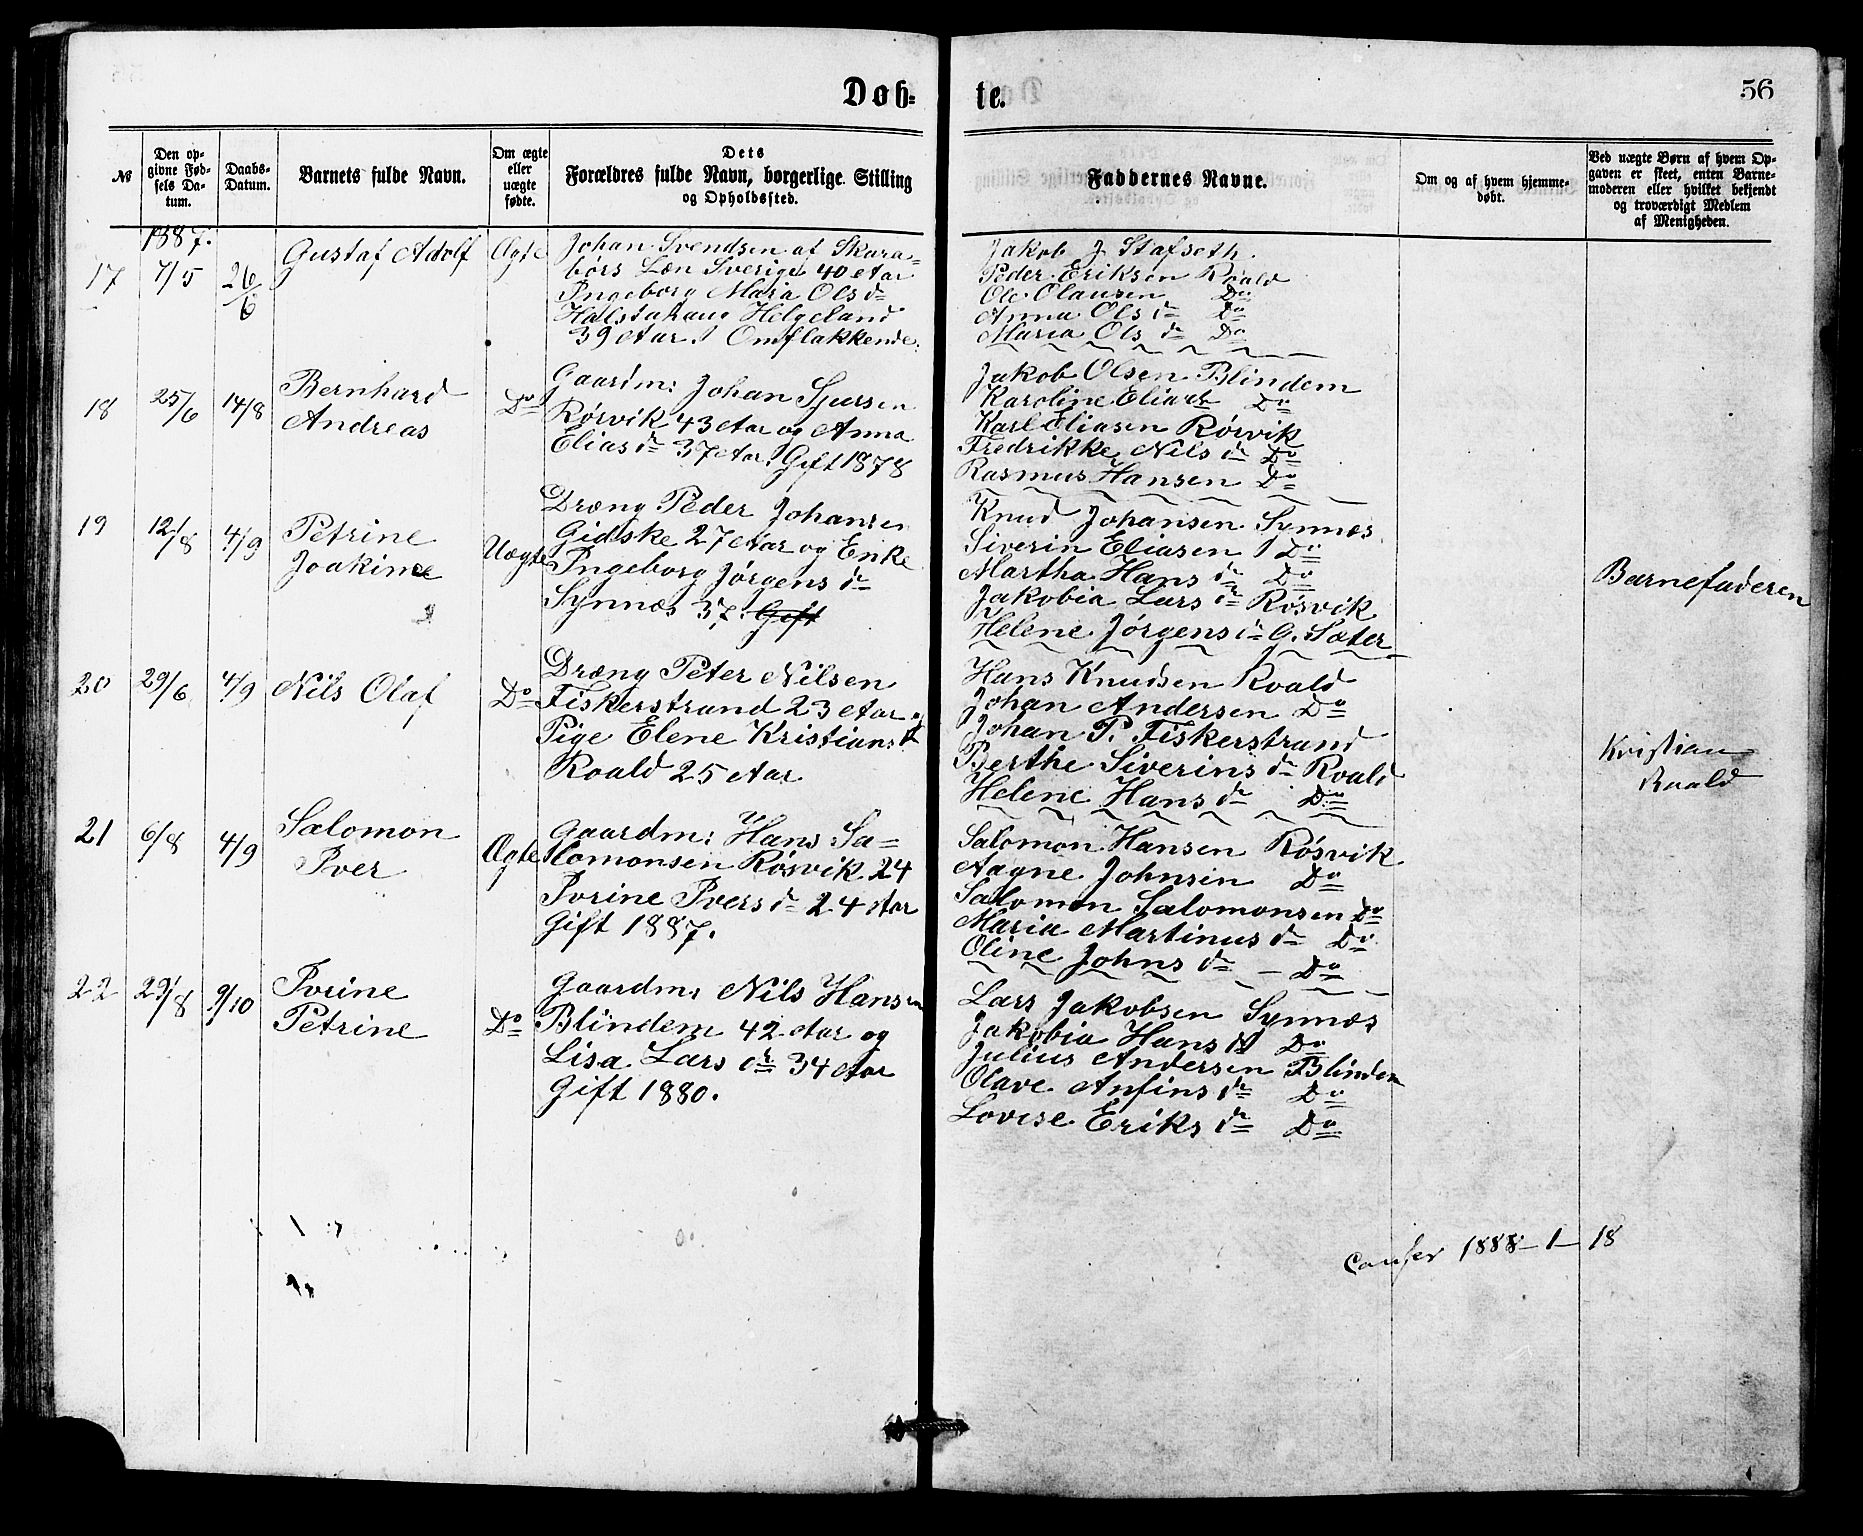 Døb-
te.
56
№
Den op-
givne Fød-
sels Da-
tum.
Daabs-
Datum.
Barnets fulde Navn.
Om ægte
eller
uægte
fødte.
Dets
Forældres fulde Navn, borgerlige Stilling
og Opholdssted.
Faddernes Navne.
Om og af hvem hjemme-
døbt.
Ved uægte Børn af hvem Op-
gaven er skeet, enten Barne-
moderen eller hvilket bekjendt
og troværdigt Medlem
af Menigheden.
1887.
17
7/5
26/6
Gustaf Adolf
Ægte
Johan Svendsen af Skara-
bórs Læn Sverige 40 Aar
Ingeborg Maria Ols dr
Halstahaug Helgeland
39 Aar. Omflakkende.
Jakob J. Stafseth.
Peder Eriksen Roald
Ole Olausen Do
Anna Ols dr Do
Maria Ols dr Do
18
25/6
14/8
Bernhard
Andreas
Do
Gaardm: Johan Sjursen
Rórvik 43 Aar og Anna
Elias dr 37 Aar. Gift 1878
Jakob Olsen Blindem
Karoline Elias dr Do
Karl Eliasen Rórvik
Fredrikke Nils dr Do
Rasmus Hansen Do
19
12/8
4/9
Petrine
Joakime
Uægte
Dræng Peder Johansen
Gidske 27 Aar og Enke
Ingeborg Jørgens dr
Synnæs 37. Gift
Knud Johansen Synnæs
Siverin Eliasen Do
Martha Hans dr Do
Jakobia Lars dr Rósvik
Helene Jørgens dr G. Sæter
Barnefaderen
20
29/6
4/9
Nils Olaf
Do
Dræng Peter Nilsen
Fiskerstrand 23 Aar og
Pige Elene Kristians dr
Roald 25 Aar
Hans Knudsen Roald
Johan Andersen Do
Johan P. Fiskerstrand
Berthe Siverins dr Roald
Helene Hans dr Do
Kristian
Roald
21
6/8
4/9
Salomon
Iver
Ægte
Gaardm: Hans Sa-
lomonsen Rósvik 24
Ivrine Ivers dr 24 Aar
Gift 1887.
Salomon Hansen Rósvik
Aagne Johnsen Do
Salomon Salomonsen Do
Maria Martinus dr Do
Oline Johns dr - Do
22
29/8
9/10
Ivrine
Petrine
Do
Gaardm: Nils Hansen
Blindem 42 Aar og
Lisa Lars dr 34 Aar
Gift 1880.
Lars Jakobsen Synnæs
Jakobia Hans dr Do
Julius Andersen Blindem
Olave Anfins dr Do
Lovise Eriks dr Do
Confer 1888-1-18